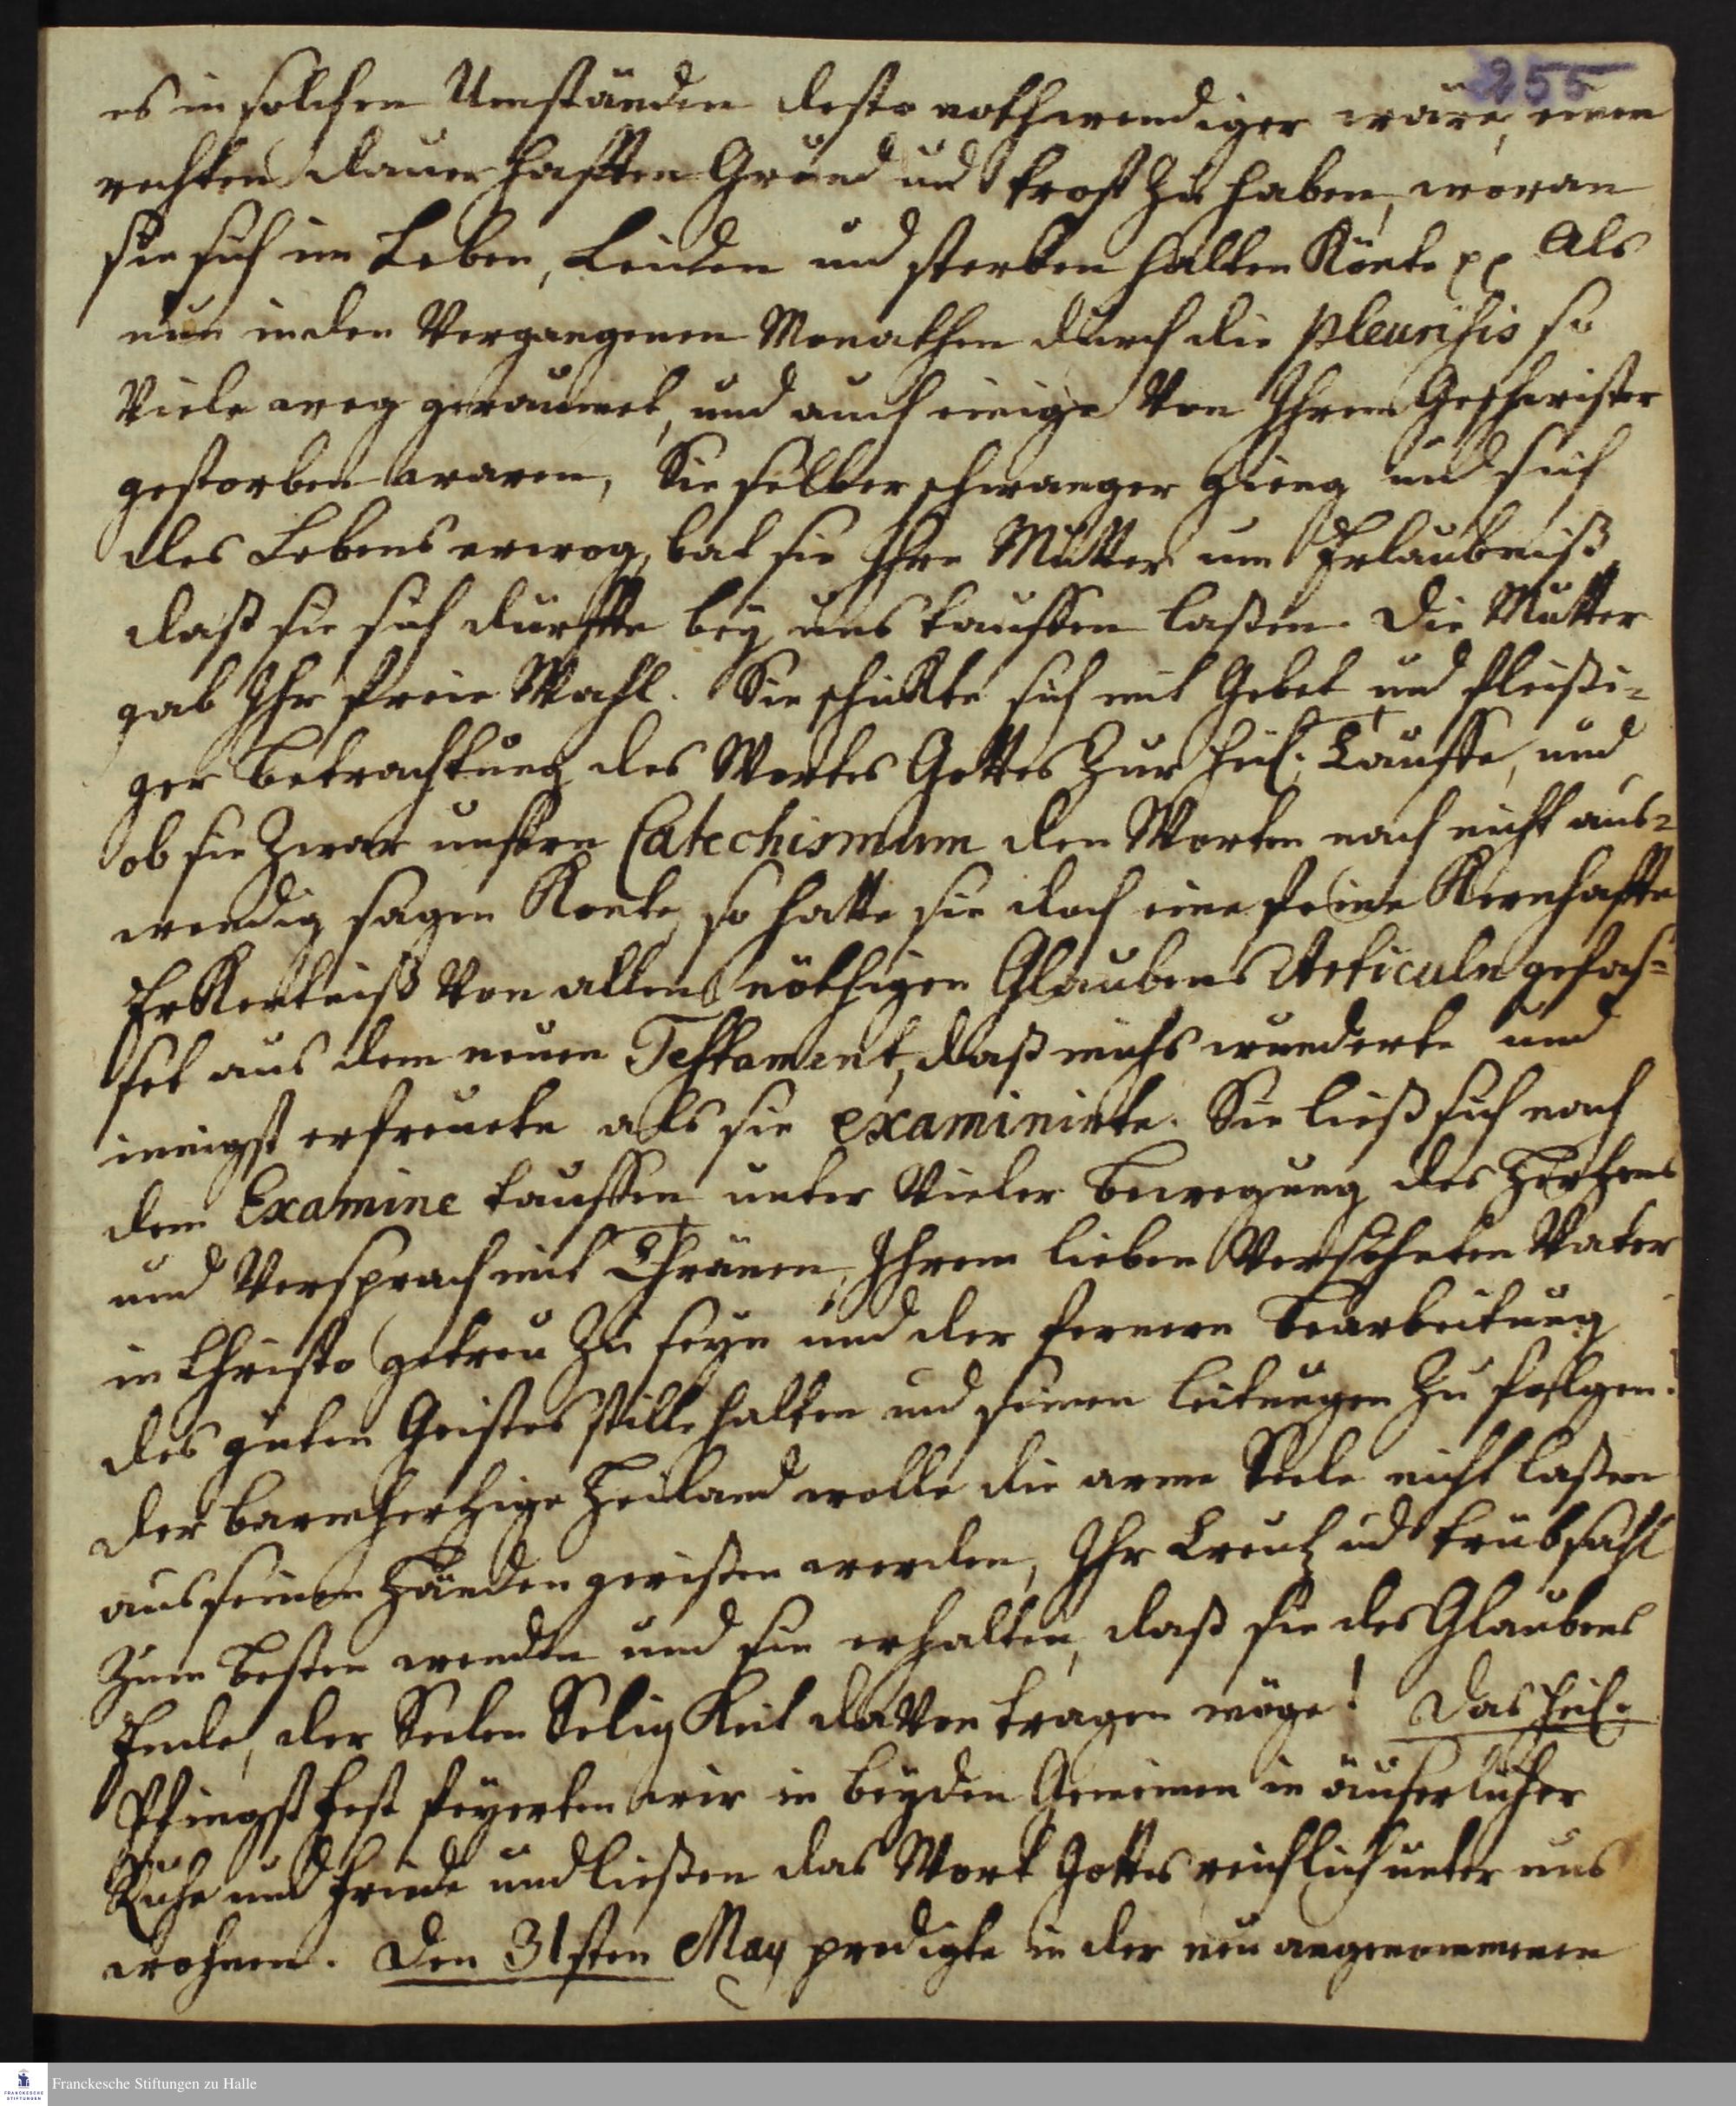 255
es in solchen Umständen desto nothwendiger wäre, einen
rechten dauerhafften Grund und trost zu haben, woran
sie sich im Leben, Leiden und sterben halten Könte pp Als
nun in den Vergangenen Monathen durch die pleurisis so
Viele weg geraumet, und auch einige Von Ihrem Geschwister
gestorben waren, Sie selber schwanger gieng und sich
des Lebens erwog, bat sie Ihre Mutter um Erlaubniß,
daß sie sich durffte bey uns tauffen laßen. Die Mutter
gab Ihr freie Wahl. Sie schickte sich mit Gebet und fleißi-
ger Betrachtung des Wortes Gottes Zur heil: Tauffe, und
ob sie Zwar unsern Catechismum den Worten nach nicht aus-
wendig sagen Konte, so hatte sie doch eine feine Kernhaffte
ErKentniß Von allen nöthigen Glaubens Articuln gefas-
set aus dem neuen Testament, daß michs wunderte und
innigst erfreuete als sie examinirte. Sie ließ sich nach
dem Examine tauffen unter Vieler bewegung des Hertzens
und Versprach mit Thränen, Ihrem lieben Versöhnten Vater
in Christo getreu Zu seyn und der fernern bearbeitung
des guten Geistes stille halten und seinen leitungen Zu folgen.
der barmhertzige Heiland wolle die arme Seele nicht laßen
aus seinen Händen gerißen werden, Ihr Creutz und trübsahl
Zum besten wenden und sie erhalten, daß sie des Glaubens
Ende, der Seelen SeligKeit daVon tragen möge! Das heil:
Pfingstfest feyerten wir in beyden Gemeinen in äuserlicher
Ruhe und Friede und ließen das Wort Gottes reichlich unter uns
wohnen. Den 31sten May predigte in der neu angenommenen
FRANCKESCHE STIFTUNGEN
Franckesche Stiftungen zu Halle